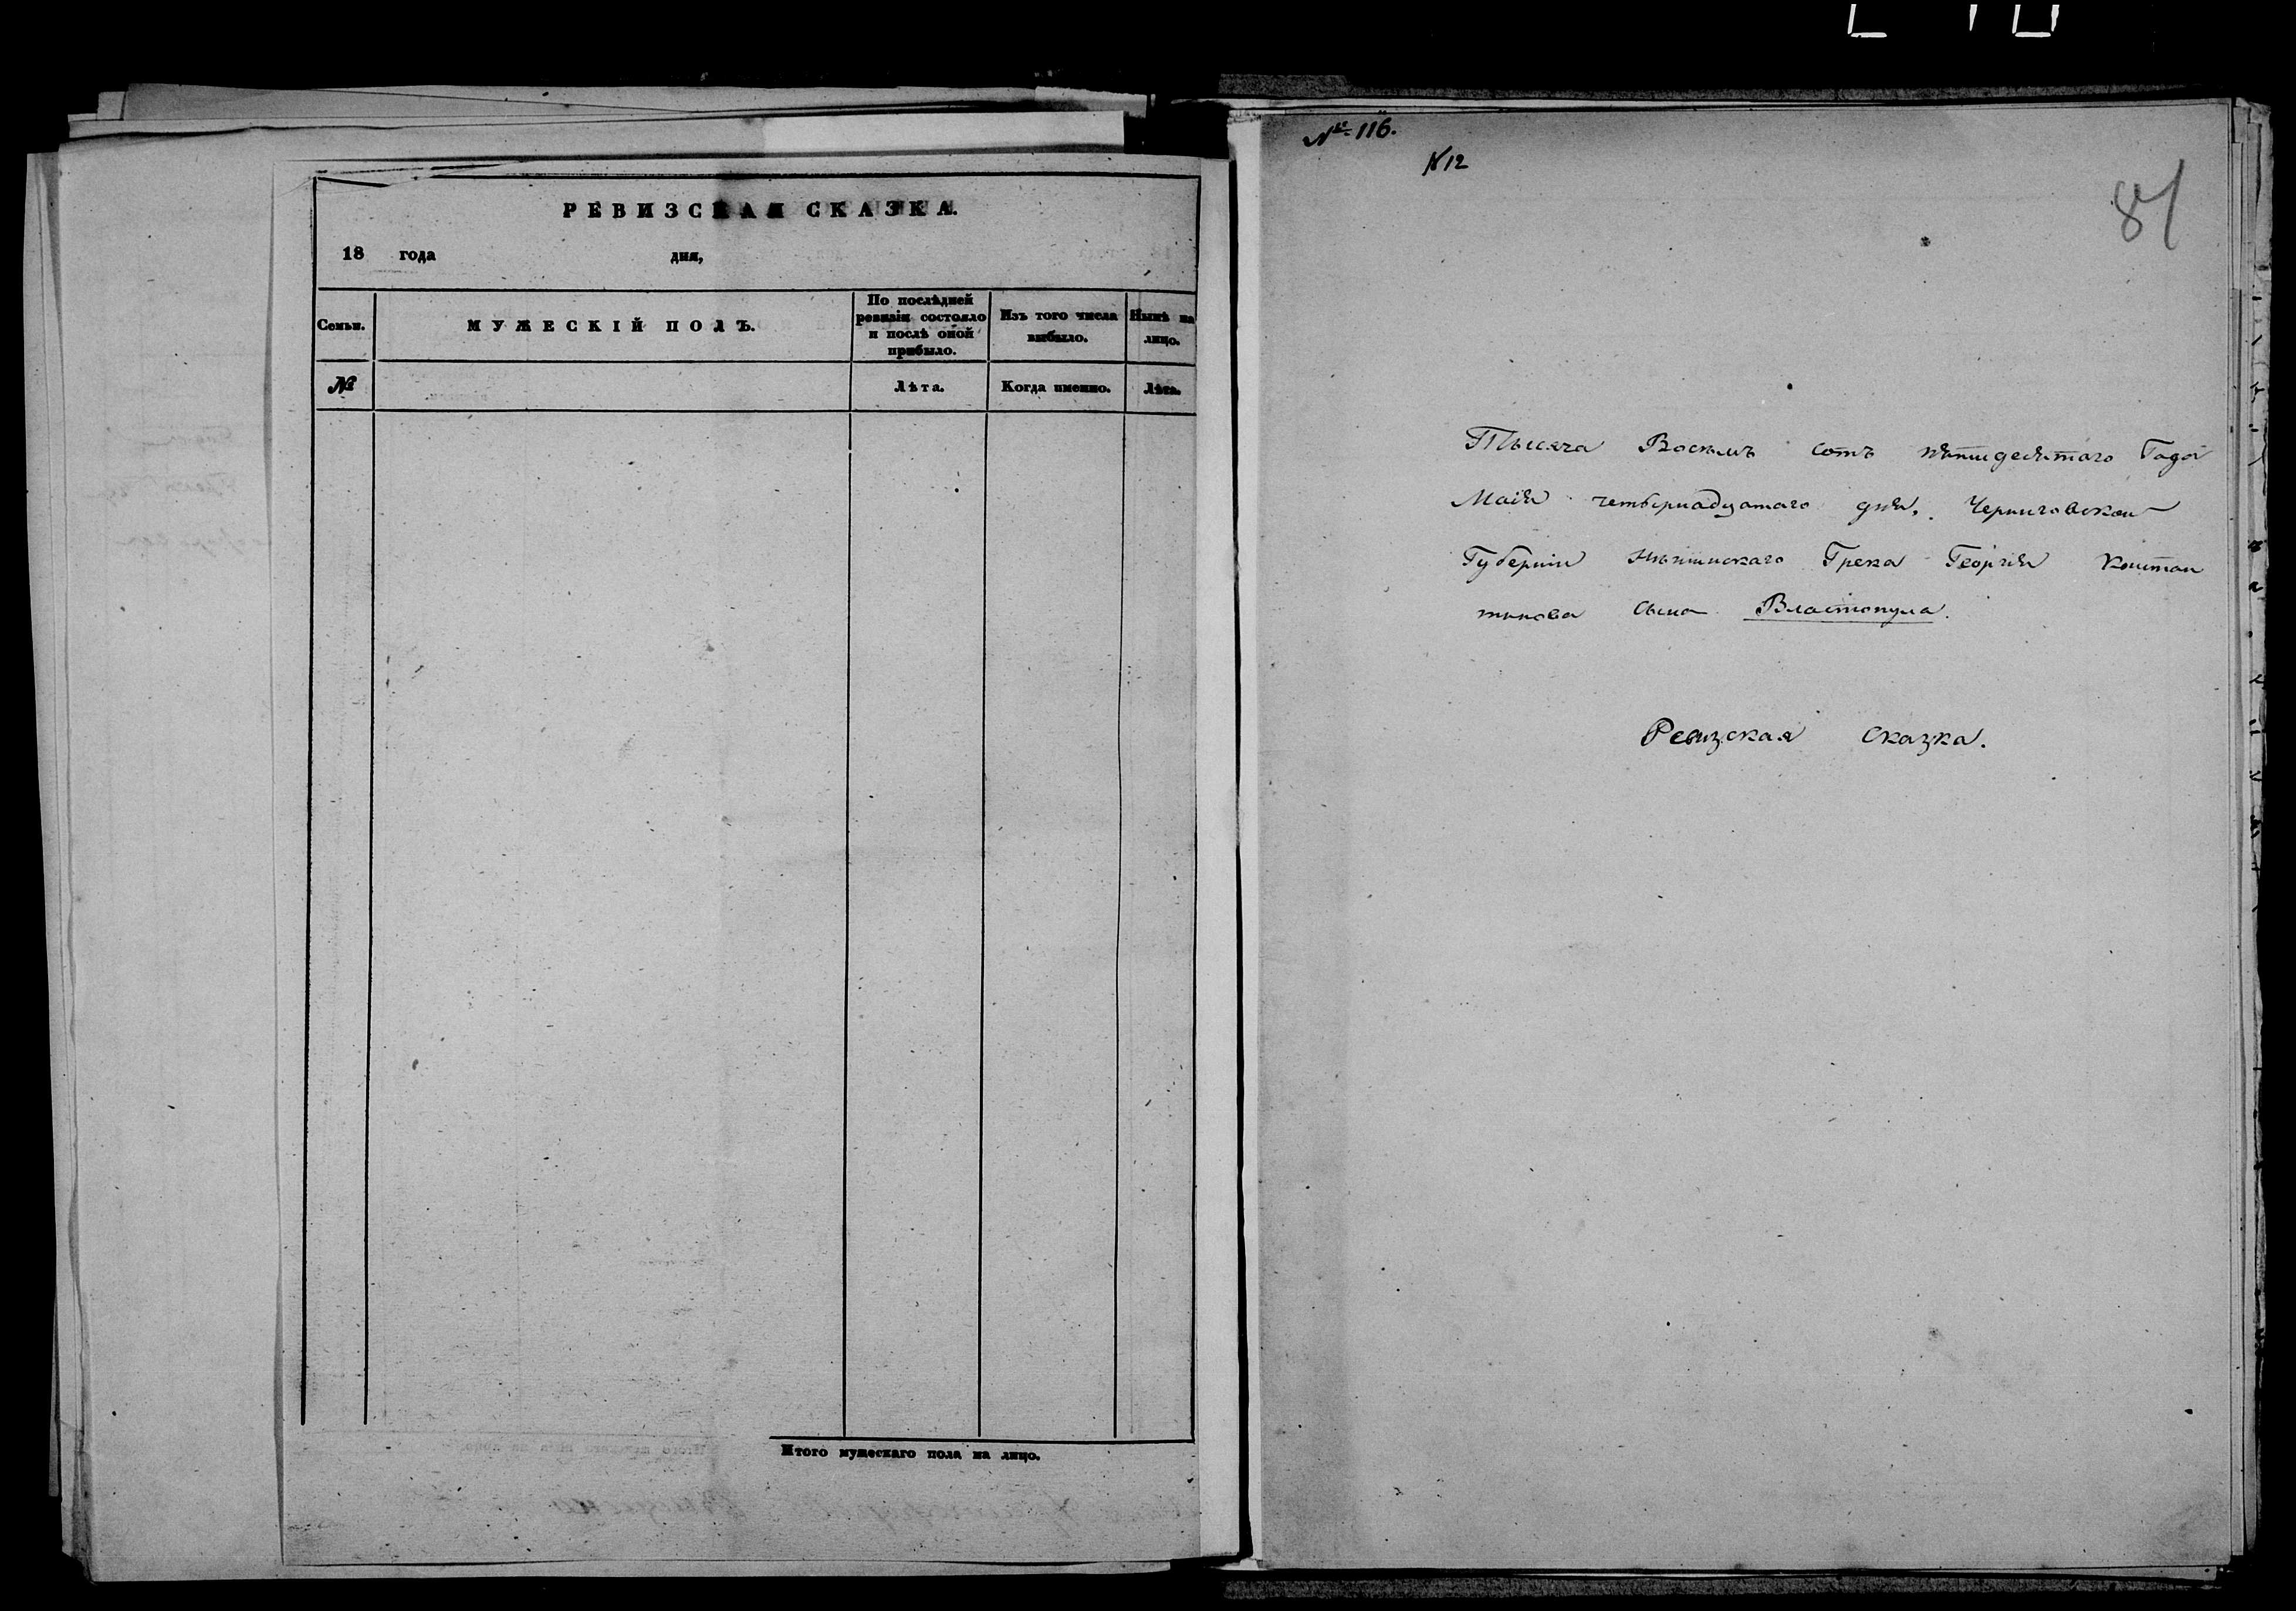 РЕВИЗСКАЯ СКАЗКА.
18 года дня,
Семьи.
МУЖЕСКІЙ ПОЛЪ.
По послѣдней
ревизіи состояло
и послѣ оной
прибыло.
Изъ того числа
выбыло.
Нынѣ на
лицо.
№
Лѣта.
Когда именно.
Лѣта.
Итого мужескаго пола на лицо.
№ 116.
№ 12
87
Тысяча Восемь сотъ пятидесятаго Года
Маія четырнадцатаго дня, Черниговской
Губерніи Нѣжинскаго Грека Георгія Констан
тинова сына Властопула.
Ревизская Сказка.